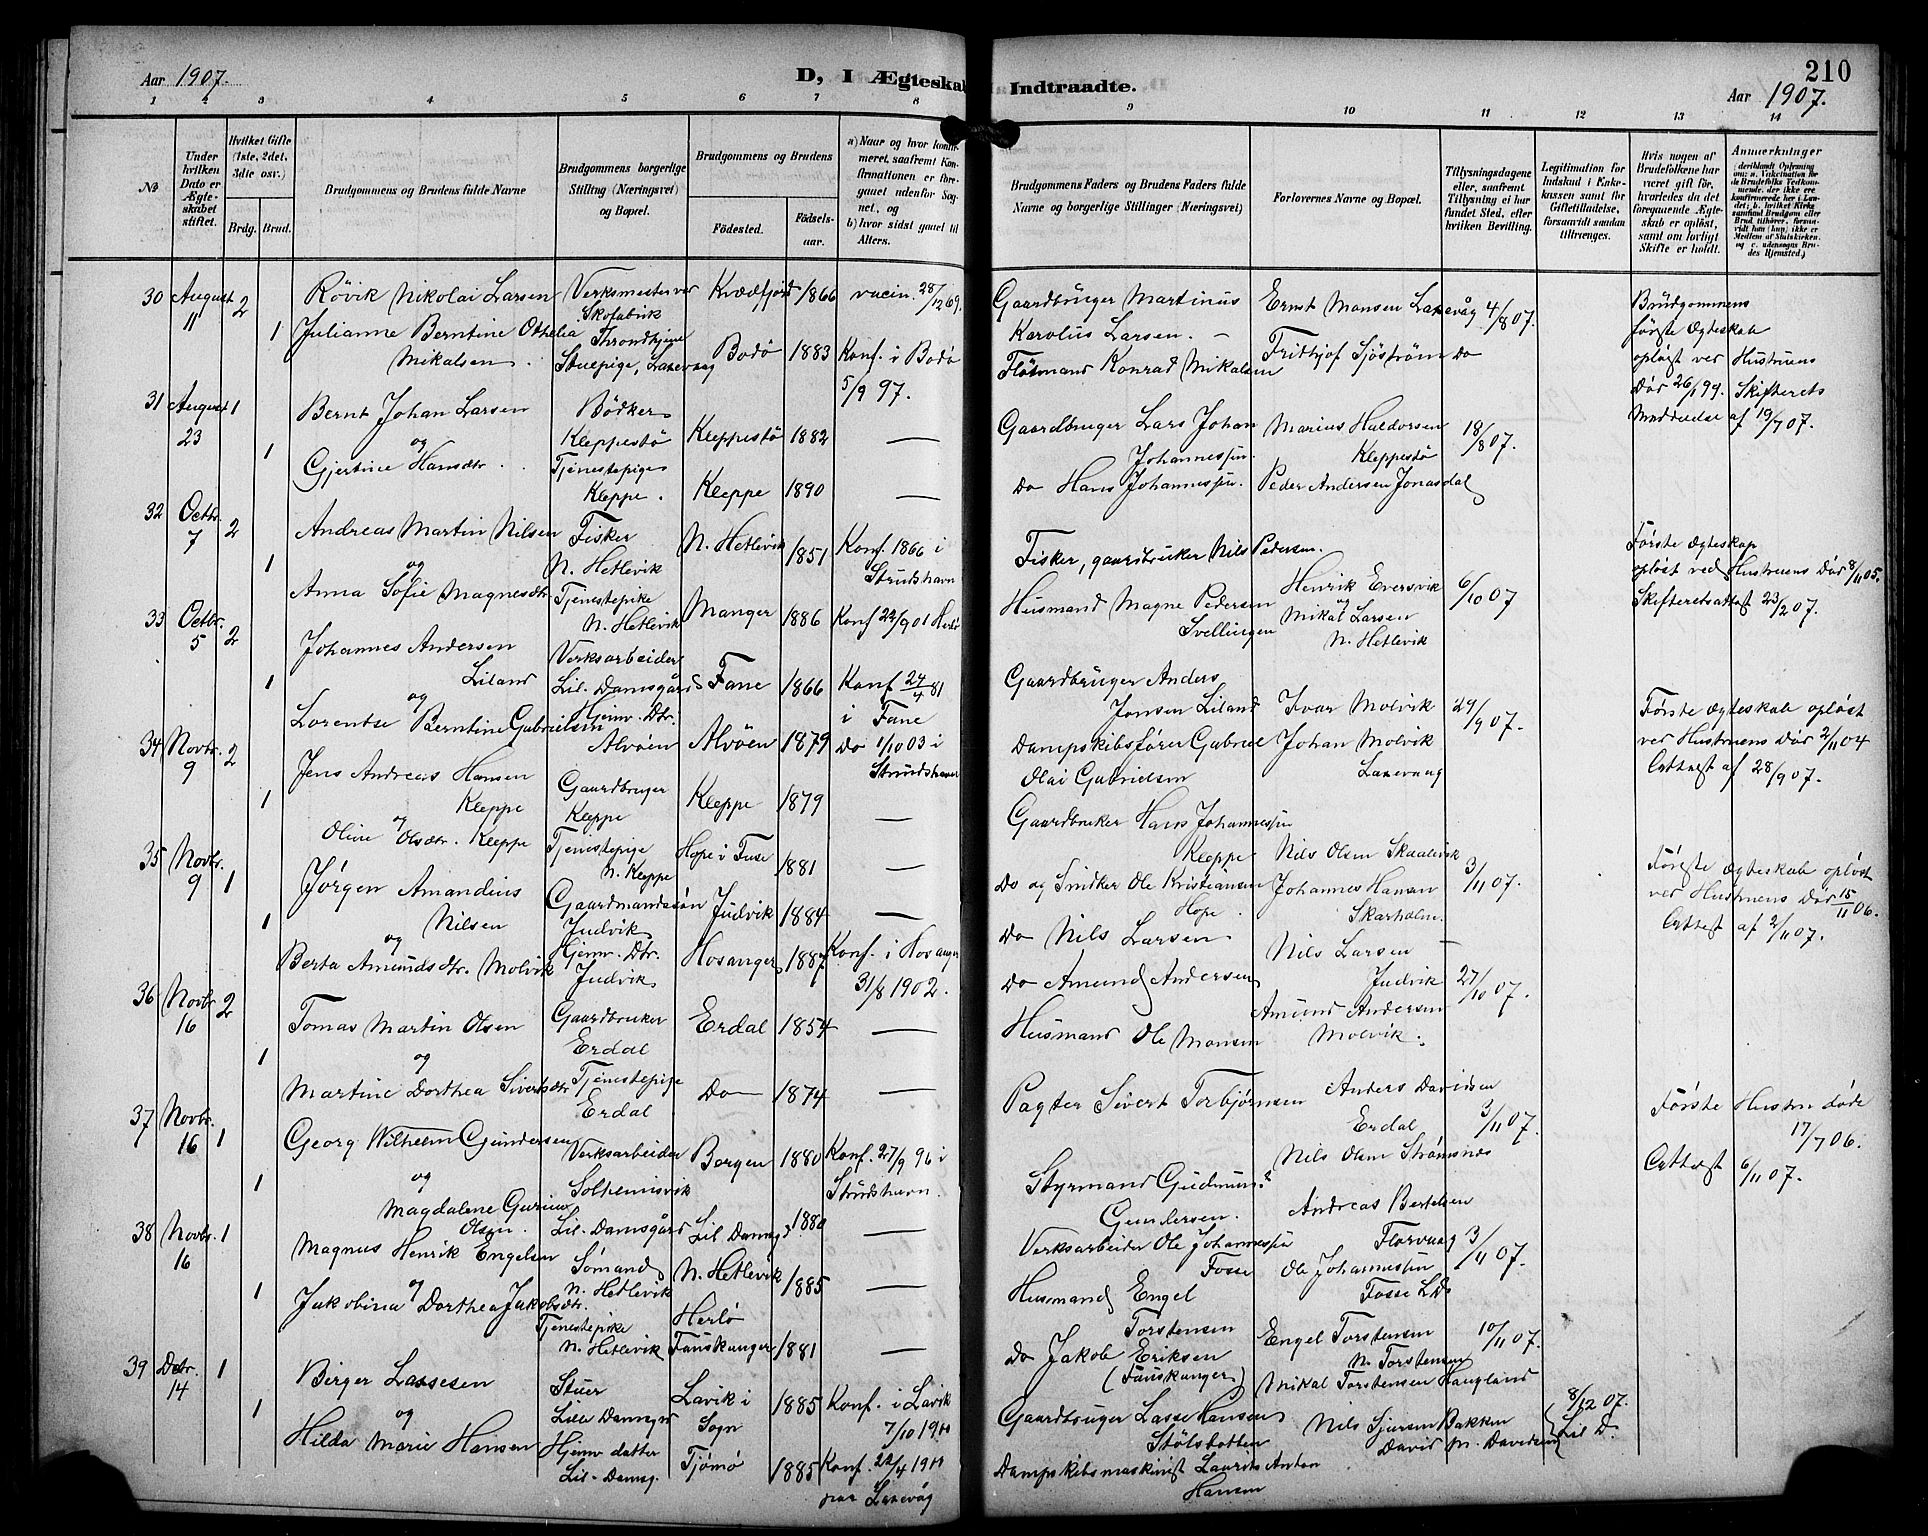 Aar 1907.
D, I Ægteskab Indtraadte.
210
Aar 1907.
1 2 3 4 5 6 7 8 9 10 11 12 13 14
No
Under hvilken Dato er Ægteskabet stiftet.
Hvilket Gifte (1ste, 2det, 3die osv.)
Brdg. Brud.
Brudgommens og Brudens fulde Navne
Brudgommens borgerlige Stilling (Næringsvei) og Bopæl.
Brudgommens og Brudens
Fødested.
Fødselsaar.
a) Naar og hvor konfirmeret, saafremt Konfirmationen er foregaaet udenfor Sognet, og
b) hvor sidst gaaet til Alters.
Brudgommens Faders og Brudens Faders fulde Navne og borgerlige Stillinger (Næringsvei)
Forlovernes Navne og Bopæl.
Tillysningsdagene eller, saafremt Tillysning ei har fundet Sted, efter hvilken Bevilling.
Legitimation for Indskud i Enkekassen samt for Giftetilladelse, forsaavidt saadan tiltrænges.
Hvis nogen af Brudefolkene har været gift før, hvorledes da det foregaaende Ægteskab er opløst, samt om lovligt Skifte er holdt.
Anmærkninger
30 August 11 2 Røvik Nikolai Larsen Verksmester ved Skofabrik Throndhjem Kvædfjord 1866 vacin. 28/12 69.
Gaardbruger Martinus Karolus Larsen. Ernst Monsen Laxevåg 4/8 07.
Brudgommens første Ægteskab opløst ved Hustruens Død 26/1 99. Skifterets Meddelelse af 19/7 07.
1 Julianne Berntine Othelia Mikalsen. Stuepige, Laxevaag Bodø 1883 Konf. i Bodø 5/9 97.
Flösmand Konrad Mikalsen Frithjof Sjöström Do
31 August 23 1 Bernt Johan Larsen Bödker Kleppestö Kleppestö 1882 —
og
Gaardbruger Lars Johan Johannessen. Marius Haldorsen Kleppestö 18/8 07.
1 Gjertine Hansdtr. Tjenestepige Kleppe. Kleppe 1890 —
Do Hans Johannessen. Peder Andersen Jonasdal
32 Octbr. 7 2 Andreas Martin Nilsen Fisker N. Hetlevik N. Hetlevik 1851 Konf. 1866 i Strudshavn
og
Fisker, gaardbruker Nils Pedersen. Henrik Eversvik 6/10 07
og
Første Ægteskap opløst ved Hustruens Død 8/11 05. Skifteretsattest 23/2 07.
1 Anna Sofie Magnesdtr. Tjenestepike N. Hetlevik Manger 1886 Konf 22/9 01 Herlö
Husmand Magne Pedersen Svellingen Mikal Larsen N. Hetlevik
33 Octbr. 5 2 Johannes Andersen Liland Verksarbeider Lil. Damsgård Fane 1866 Konf 24/4 81 i Fane
og
Gaardbruger Anders Jonsen Liland Ivar Molvik 29/9 07.
Første Ægteskab opløst ved Hustruens Död 2/11 04 Attest af 28/9 07.
1 Lorentse Berntine Gabrielsen Hjemv. Dtr. Alvöen Alvöen 1879 Do 1/10 03 i Strudshavn
Dampskibsfører Gabriel Olai Gabrielsen Johan Molvik Laxevaag
34 Novbr. 9 2 Jens Andreas Hansen Kleppe Gaardbruger Kleppe Kleppe 1879 —
og
Gaardbruker Hans Johannessen Kleppe Nils Olsen Skaalevik 3/11 07.
Første Ægteskab opløst ved Hustruens Död 15/11 06. Attest af 2/11 07.
1 Oline Olsdtr. Kleppe Tjenestepige N. Kleppe Hope i Fuse 1881 —
Do og Snidker Ole Kristiansen Hope. Johannes Hansen Skarholm.
35 Novbr. 9 1 Jørgen Amandius Nilsen Gaardmandssön Judvik Judvik 1884 —
og
Do Nils Larsen Nils Larsen Judvik 27/10 07.
1 Berta Amundsdtr. Molvik Hjemv. Dtr. Judvik Hosanger 1887 Konf. i Hosanger 31/8 1902.
Do Amund Andersen Amund Andersen Molvik.
36 Novbr. 16 2 Tomas Martin Olsen Gaardbruker Erdal Erdal 1854 —
og
Husmand Ole Monsen Anders Davidsen Erdal 3/11 07.
Første Hustru døde 17/7 06. Attest 6/11 07.
1 Martine Dorthea Sivertsdtr Tjenestepige Erdal Do 1874 —
Pagter Sivert Torbjørnsen Nils Olsen Strömsnes
37 Novbr. 16 1 Georg Wilhelm Gundersen Verksarbeider Solheimsvik Bergen 1880 Konf. 27/9 96 i Strudshavn.
og
Styrmand Gudmund Gundersen. Andreas Bertelsen Florvaag 3/11 07.
1 Magdalene Gurine Olsen. Lil. Damsgård Lil Damsg. 1880 —
Verksarbeider Ole Johannessen Fosse Ole Johannessen Fosse L.D.
38 Novbr. 16 1 Magnus Henrik Engelsen Sømand N. Hetlevik N. Hetlevik 1885 —
og
Husmand Engel Torstensen Engel Torstensen 10/11 07.
N. Torstensen
1 Jakobina Dorthea Jakobsdtr. Tjenestepike N. Hetlevik Herlö Fauskanger 1881 —
Do Jakob Eriksen (Fauskanger) Mikal Torstensen Haugland
39 Dcbr. 14 1 Birger Lassesen Stuer Lille Damsgd Lavik i Sogn 1885 Konf. i Lavik 7/10 1900
og
Gaardbruger Lasse Hansen Stölsbotten Nils Sjursen Bakken 8/12 07. Lil D.
1 Hilda Marie Hansen Hjemv datter Lil. Damsg. Tjömö 1885 Konf. 22/4 1900 paa Laxevåg
Dampskibsmaskinist Laurits Anton Hansen David M. Davidsen